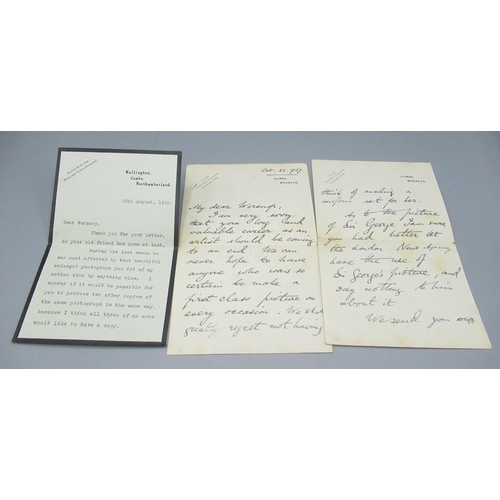 Wallington,
Cambo,
Northumberland.
August,
Dear
Thank you for your letter.
So your old friend has gone at last.
During the last weeks he
was most affected by that beautiful
enlarged photograph you did of my
mother than by anything else. I
wonder if it would be possible for
you to produce two other copies of
the same photograph in the same way,
because I think all three of us sons
would like to have a copy.
Oct. 23. 1927
CAMBO,
MORPETH
My dear
I am very sorry
that your long and
valuable career as an
artist should be coming
to an end. We can
never hope to have
anyone who was so
certain to make a
first class picture on
every occasion. We shall
greatly regret not having
CAMBO,
MORPETH
think of making a
uniform set for her.
As to the picture
of Sir George I am sure
you had better let
the London News Agency
have the use of
Sir George's picture, and
say nothing to him
about it.
We send you our